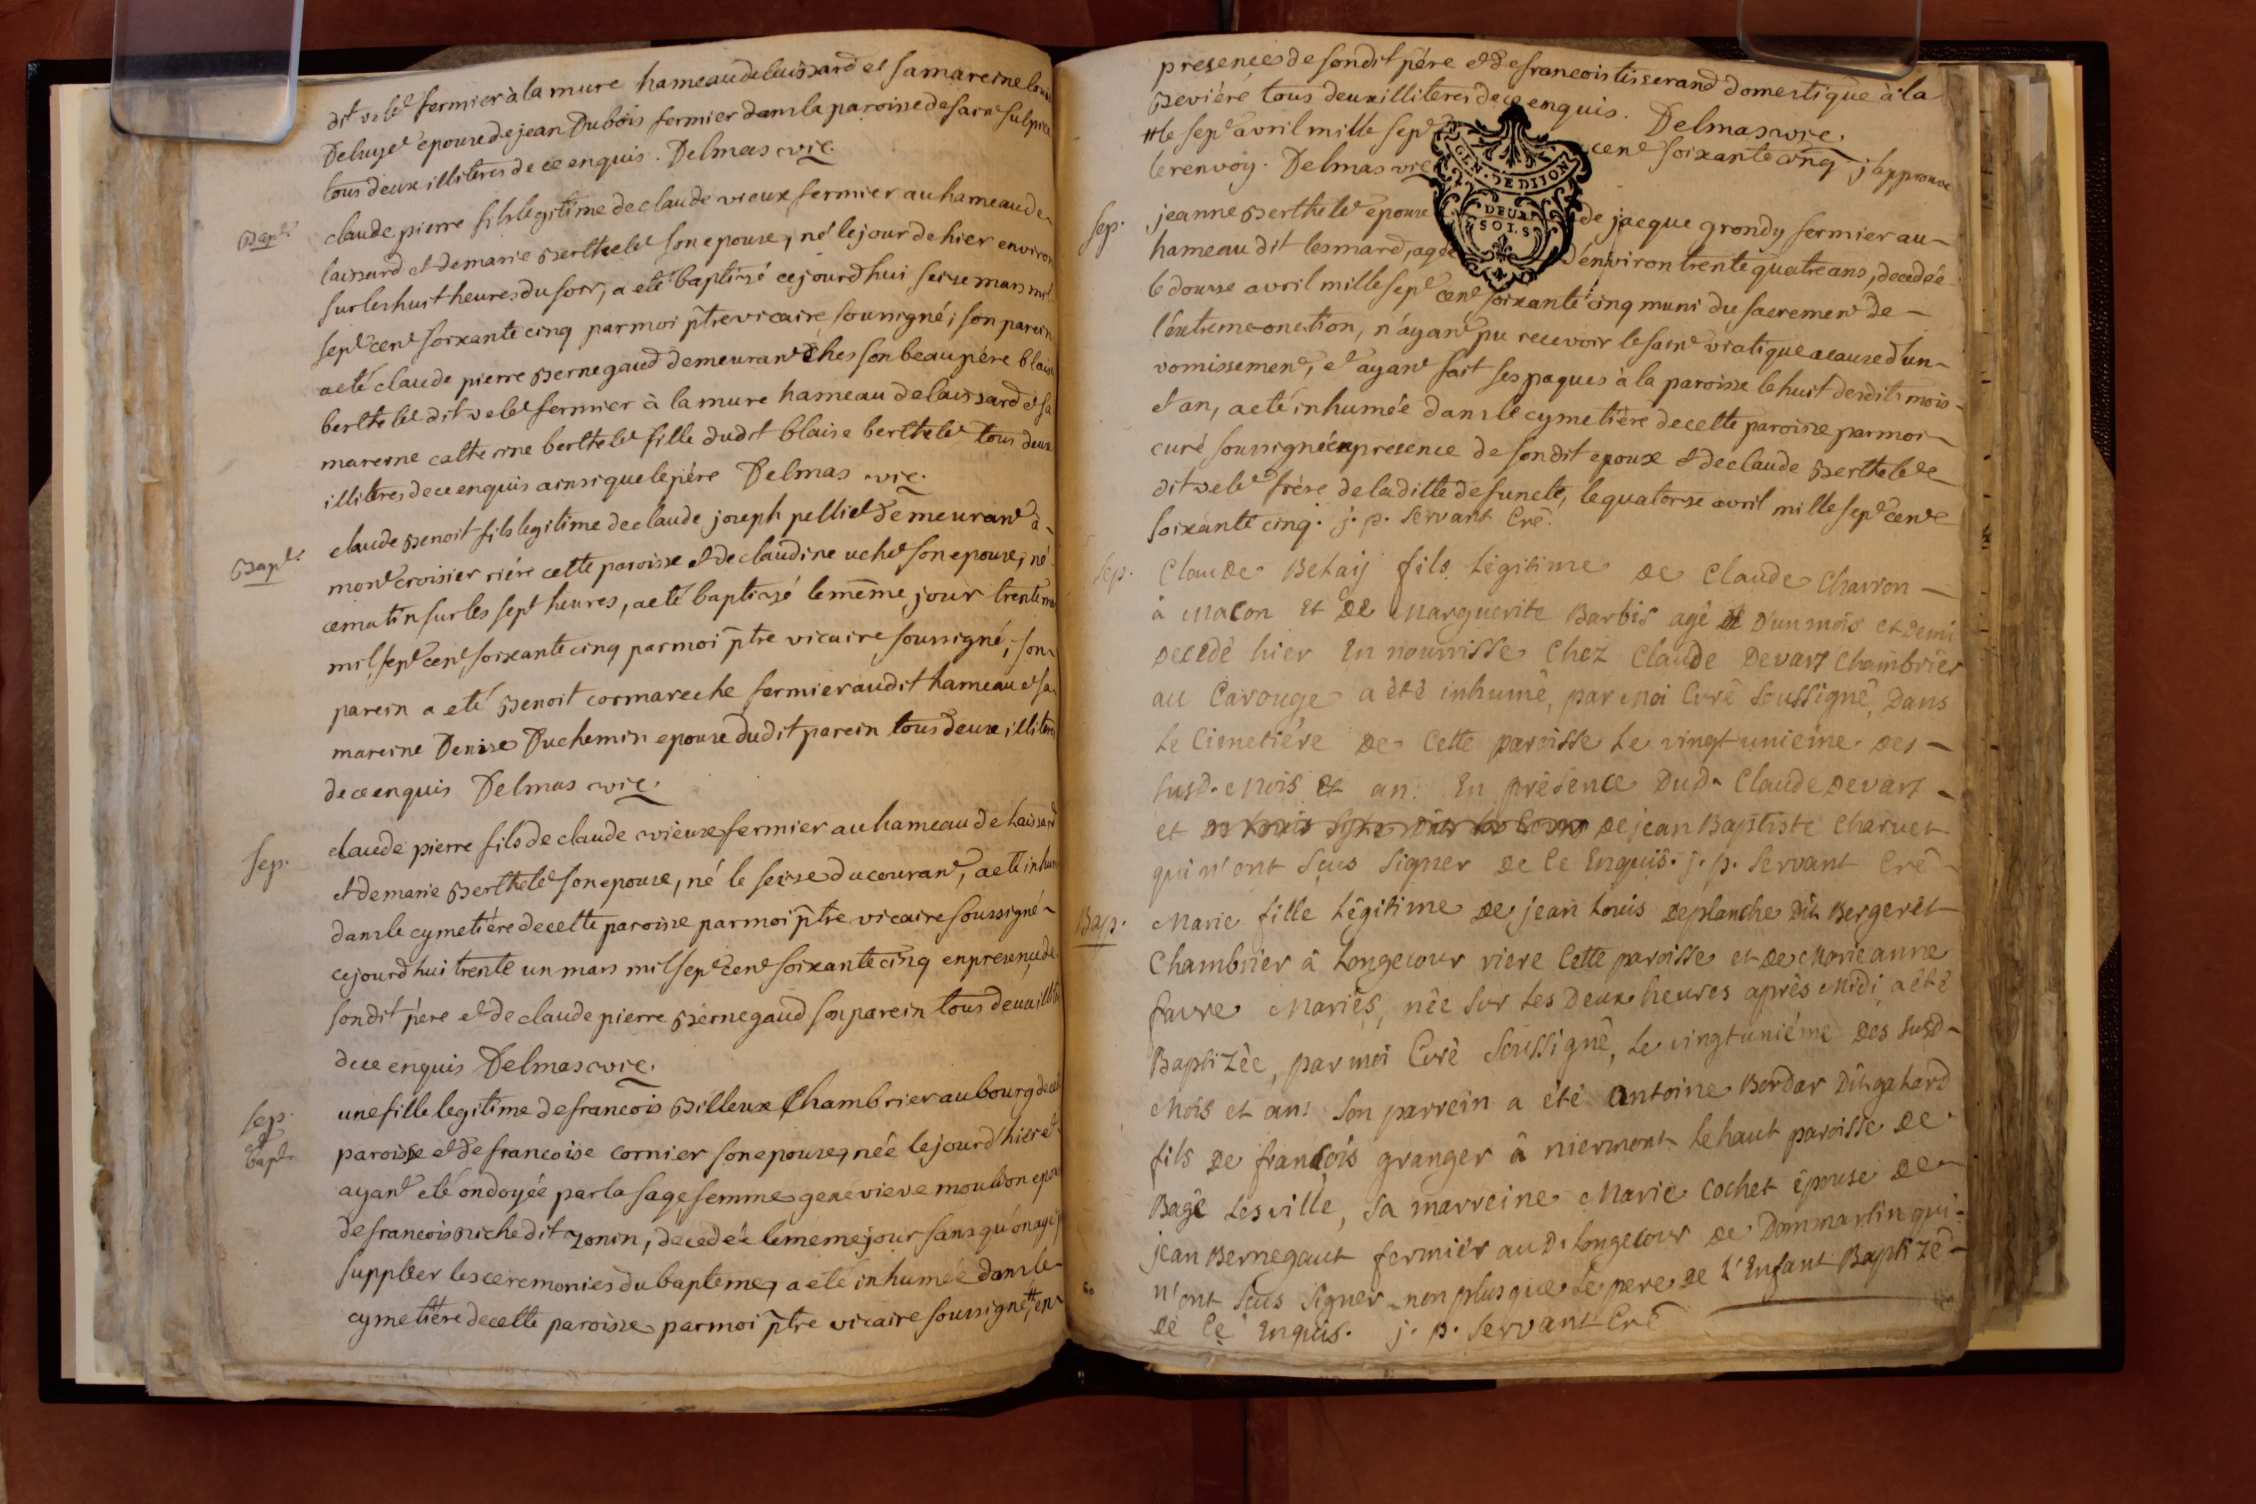 dit velet fermier à la mure hameau de laissard et sa mareine
Deluyet epouse de jean Dubois fermier dans la paroisse de saint sulpice
tous deux illiteres de ce enquis. Delmas vic.
Bapt.
claude pierre fils legitime de claude vieux fermier au hameau de
laissard et de marie Berthelet son epouse, né le jour de hier environ
sur les huit heures du soir, a eté baptisé cejourdhui seise mars mil
sept cent soixante cinq par moi ptre vicaire soussigné, son parein
a eté claude pierre Bernegaud demeurant ches son beau pére blaise
berthelet dit velet fermier à la mure hameau de laissard et sa
mareine catterine berthelet fille dudit blaise berthelet tous deux
illiteres de ce enquis ainsi que le pére Delmas vic.
Bapt.
claude Benoit fils legitime de claude joseph pelliet demeurant à
mont croisier riére cette paroisse et de claudine uchet son epouse, né
ce matin sur les sept heures, a eté baptisé le même jour trente mars
mil sept cent soixante cinq par moi ptre vicaire soussigné, son
parein a eté Benoit cormareche fermier audit hameau et sa
mareine Denise Duchemin epouse dudit parein tous deux illiteres
de ce enquis Delmas vic.
Sep.
claude pierre fils de claude vieux fermier au hameau de Laissard
et de marie Berthelet son epouse, né le seise du courant, a eté inhumé
dans le cymetiére de cette paroisse par moi ptre vicaire soussigné
cejourdhui trente un mars mil sept cent soixante cinq en presence de
sondit pére et de claude pierre Bernegaud son parein tous deux illiteres
de ce enquis Delmas vic.
Sep. et bapt.
une fille legitime de francois Billeux Chambrier au bourg de cette
paroisse et de francoise cornier son epouse, née le jourdhier et
ayant eté ondoyée par la sage femme genevieve moulon epouse
de francois Riche dit zonin, decedée le meme jour sans qu'on aye pu
suppléer les ceremonies du bapteme, a eté inhumée dans le
cymetiére de cette paroisse par moi ptre vicaire soussigné # en
presence de sondit pére et de francois tisserand domestique à la
Beviére tous deux illiteres de ce enquis. Delmas vic.
# le sept avril mille sept cent soixante cinq j'approuve
le renvoy. Delmas vic
GEN. DE DIJON
DEUX
SOLS
Sep.
jeanne Berthelet epouse de jacque grondy fermier au
hameau dit les mard, agée d'environ trente quatre ans, decedée
le douse avril mille sept cent soixante cinq muni du sacrement de
l'extreme-onction, n'ayant pu recevoir le saint viatique a cause d'un
vomissement, et ayant fait ses paques à la paroisse le huit desdits mois
et an, a eté inhumée dans le cymetiére de cette paroisse par moi
curé soussigné en presence de sondit epoux et de claude Berthelet
dit velet frére de laditte defuncte, le quatorse avril mille sept cent
soixante cinq. j. p. Servant Cré.
Sep.
Claude Betaij fils Légitime de Claude Charron
à Macon et de Marguerite Barbis agé de D'un mois et demi
Decedé hier En nourrisse Chez Claude Devart Chambrier
au Carouge a été inhumé, par Moi Curé Soussigné, Dans
Le Cimetiére De Cette paroisse Le vingt unieme Des
Susd. Mois et an. En présence Dud. Claude Devart
et de jean Baptiste Charvet
qui n'ont Sçus Signer De Ce Enquis. j. p. Servant Cré
Bap.
Marie fille Légitime De jean Louis Deplanche Dit Bergerêt
Chambrier à Longecour riere Cette paroisse et de Marieanne
favre Mariés, née Sur Les Deux heures aprés Midi, a été
Baptizée, par moi Curé Soussigné, Le vingt uniéme Des Susd
Mois et an. Son parrein a été Antoine Bordar Dit gahard
fils De francois granger à niermont Le haut paroisse De
Bagé Lesville, Sa marreine Marie Cochet épouse De
jean Bernegaut fermier aud. Longecour De Dommartin qui
n'ont Sçus Signer non plus que Le pere De L'Enfant Baptizé
De Ce Enquis. j. p. Servant Cré